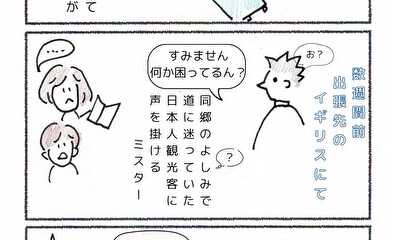 がて
数週間前
出張先の
イギリスにて
お?
すみません
何か困ってるん?
同郷のよしみで
道に迷っていた
日本人観光客に
声を掛ける
ミスター
?
...